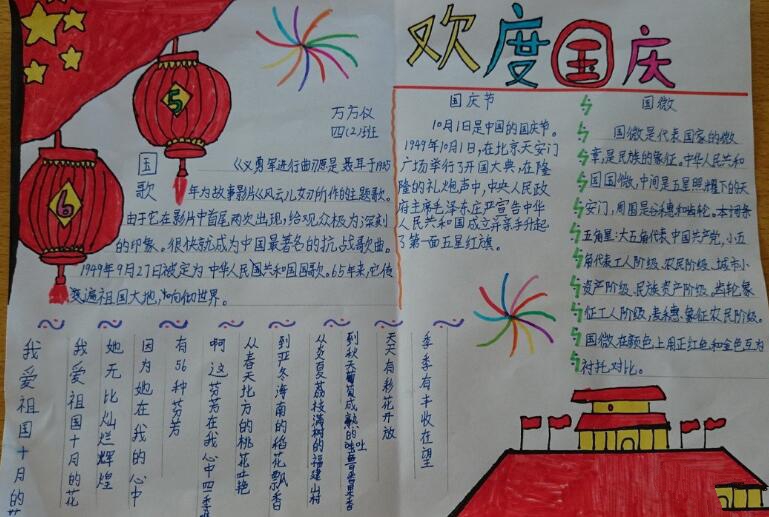 欢度国庆
5
6
万方仪
四(2)班
国歌
《义勇军进行曲》原是聂耳于1935
年为故事影片《风云儿女》所作的主题歌。
由于它在影片中首尾两次出现,给观众极为深刻
的印象。很快就成为中国最著名的抗战歌曲。
1949年9月27日被定为中华人民共和国国歌。65年来,它传
遍祖国大地,响彻世界。
国庆节
10月1日是中国的国庆节。
1949年10月1日,在北京天安门
广场举行了开国大典,在隆
隆的礼炮声中,中央人民政
府主席毛泽东庄严宣告中华
人民共和国成立并亲手升起
了第一面五星红旗。
国徽
国徽是代表国家的徽
章,是民族的象征。中华人民共和
国国徽,中间是五星照耀下的天
安门,周围是谷穗和齿轮。本词条
五角星:大五角代表中国共产党,小五
角代表工人阶级、农民阶级、城市小
资产阶级、民族资产阶级。齿轮象
征工人阶级,麦穗象征农民阶级。
国徽在颜色上用正红色和金色互为
衬托对比。
我爱祖国十月的花
我爱祖国十月的花
她无比灿烂辉煌
因为她在我的心中
有56种芬芳
啊这芬芳在我心中四季
从春天北方的桃花吐艳
到严冬海南的稻花飘香
从炎夏荔枝满树的福建山村
到秋天的吐鲁番果香
天天有彩花开放
季季有丰收在望